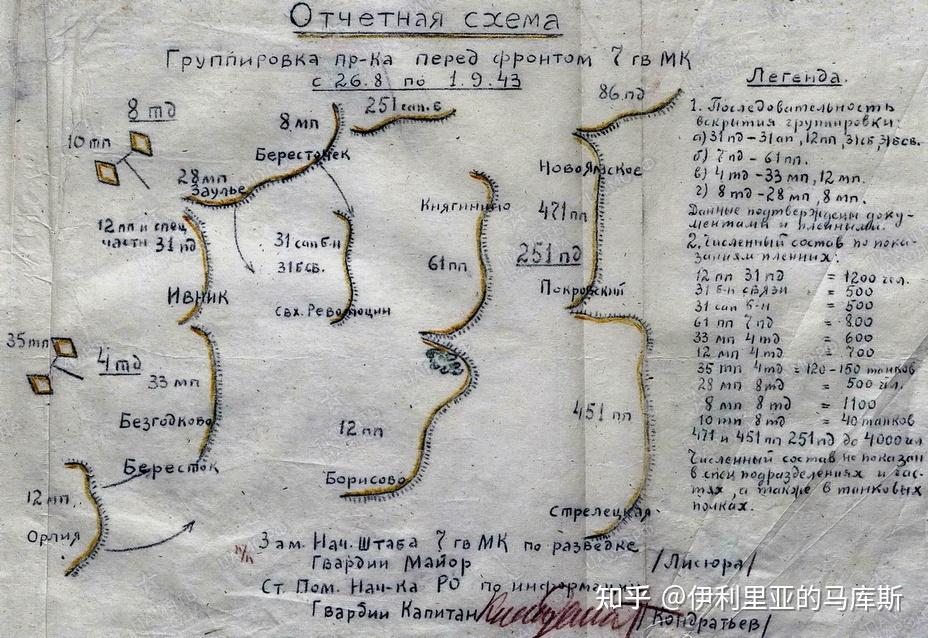 Отчетная схема
Группировка пр-ка перед фронтом 7 гв МК
с 26.8 по 1.9.43
8 тд
10 тп
8 мп
251 сап.б
86 пд
Бересточек
28 мп
Заулье
12 пп и спец
части 31 пд
Ивник
31 сап б-н
31 бсв.
свх. Революции
Княгинино
61 пп
Новоямское
471 пп
251 пд
Покровский
35 тп
4 тд
33 мп
Безгодково
Бересток
12 мп
Орлия
12 пп
Борисово
451 пп
Стрелецкая
Легенда.
1. Последовательность
вскрытия группировки:
а) 31 пд – 31 ап, 12 пп, 31 сб, 31 бсв.
б) 7 пд – 61 пп.
в) 4 тд – 33 мп, 12 мп.
г) 8 тд – 28 мп, 8 мп.
Данные подтверждены доку-
ментами и пленными.
2. Численный состав по пока-
заниям пленных:
12 пп 31 пд = 1200 чел.
31 б-н связи = 500
31 сап б-н = 500
61 пп 7 пд = 800
33 мп 4 тд = 600
12 мп 4 тд = 700
35 тп 4 тд = 120-150 танков
28 мп 8 тд = 500 чл.
8 мп 8 тд = 1100
10 тп 8 тд = 40 танков
471 и 451 пп 251 пд до 4000 чл
Численный состав не показан
в спец подразделениях и час-
тях, а также в танковых
полках.
п/п Зам. Нач. Штаба 7 гв МК по разведке
Гвардии Майор /Лисюра/
Ст. Пом. Нач-ка РО по информации
Гвардии Капитан /Кондратьев/
知乎 @伊利里亚的马库斯